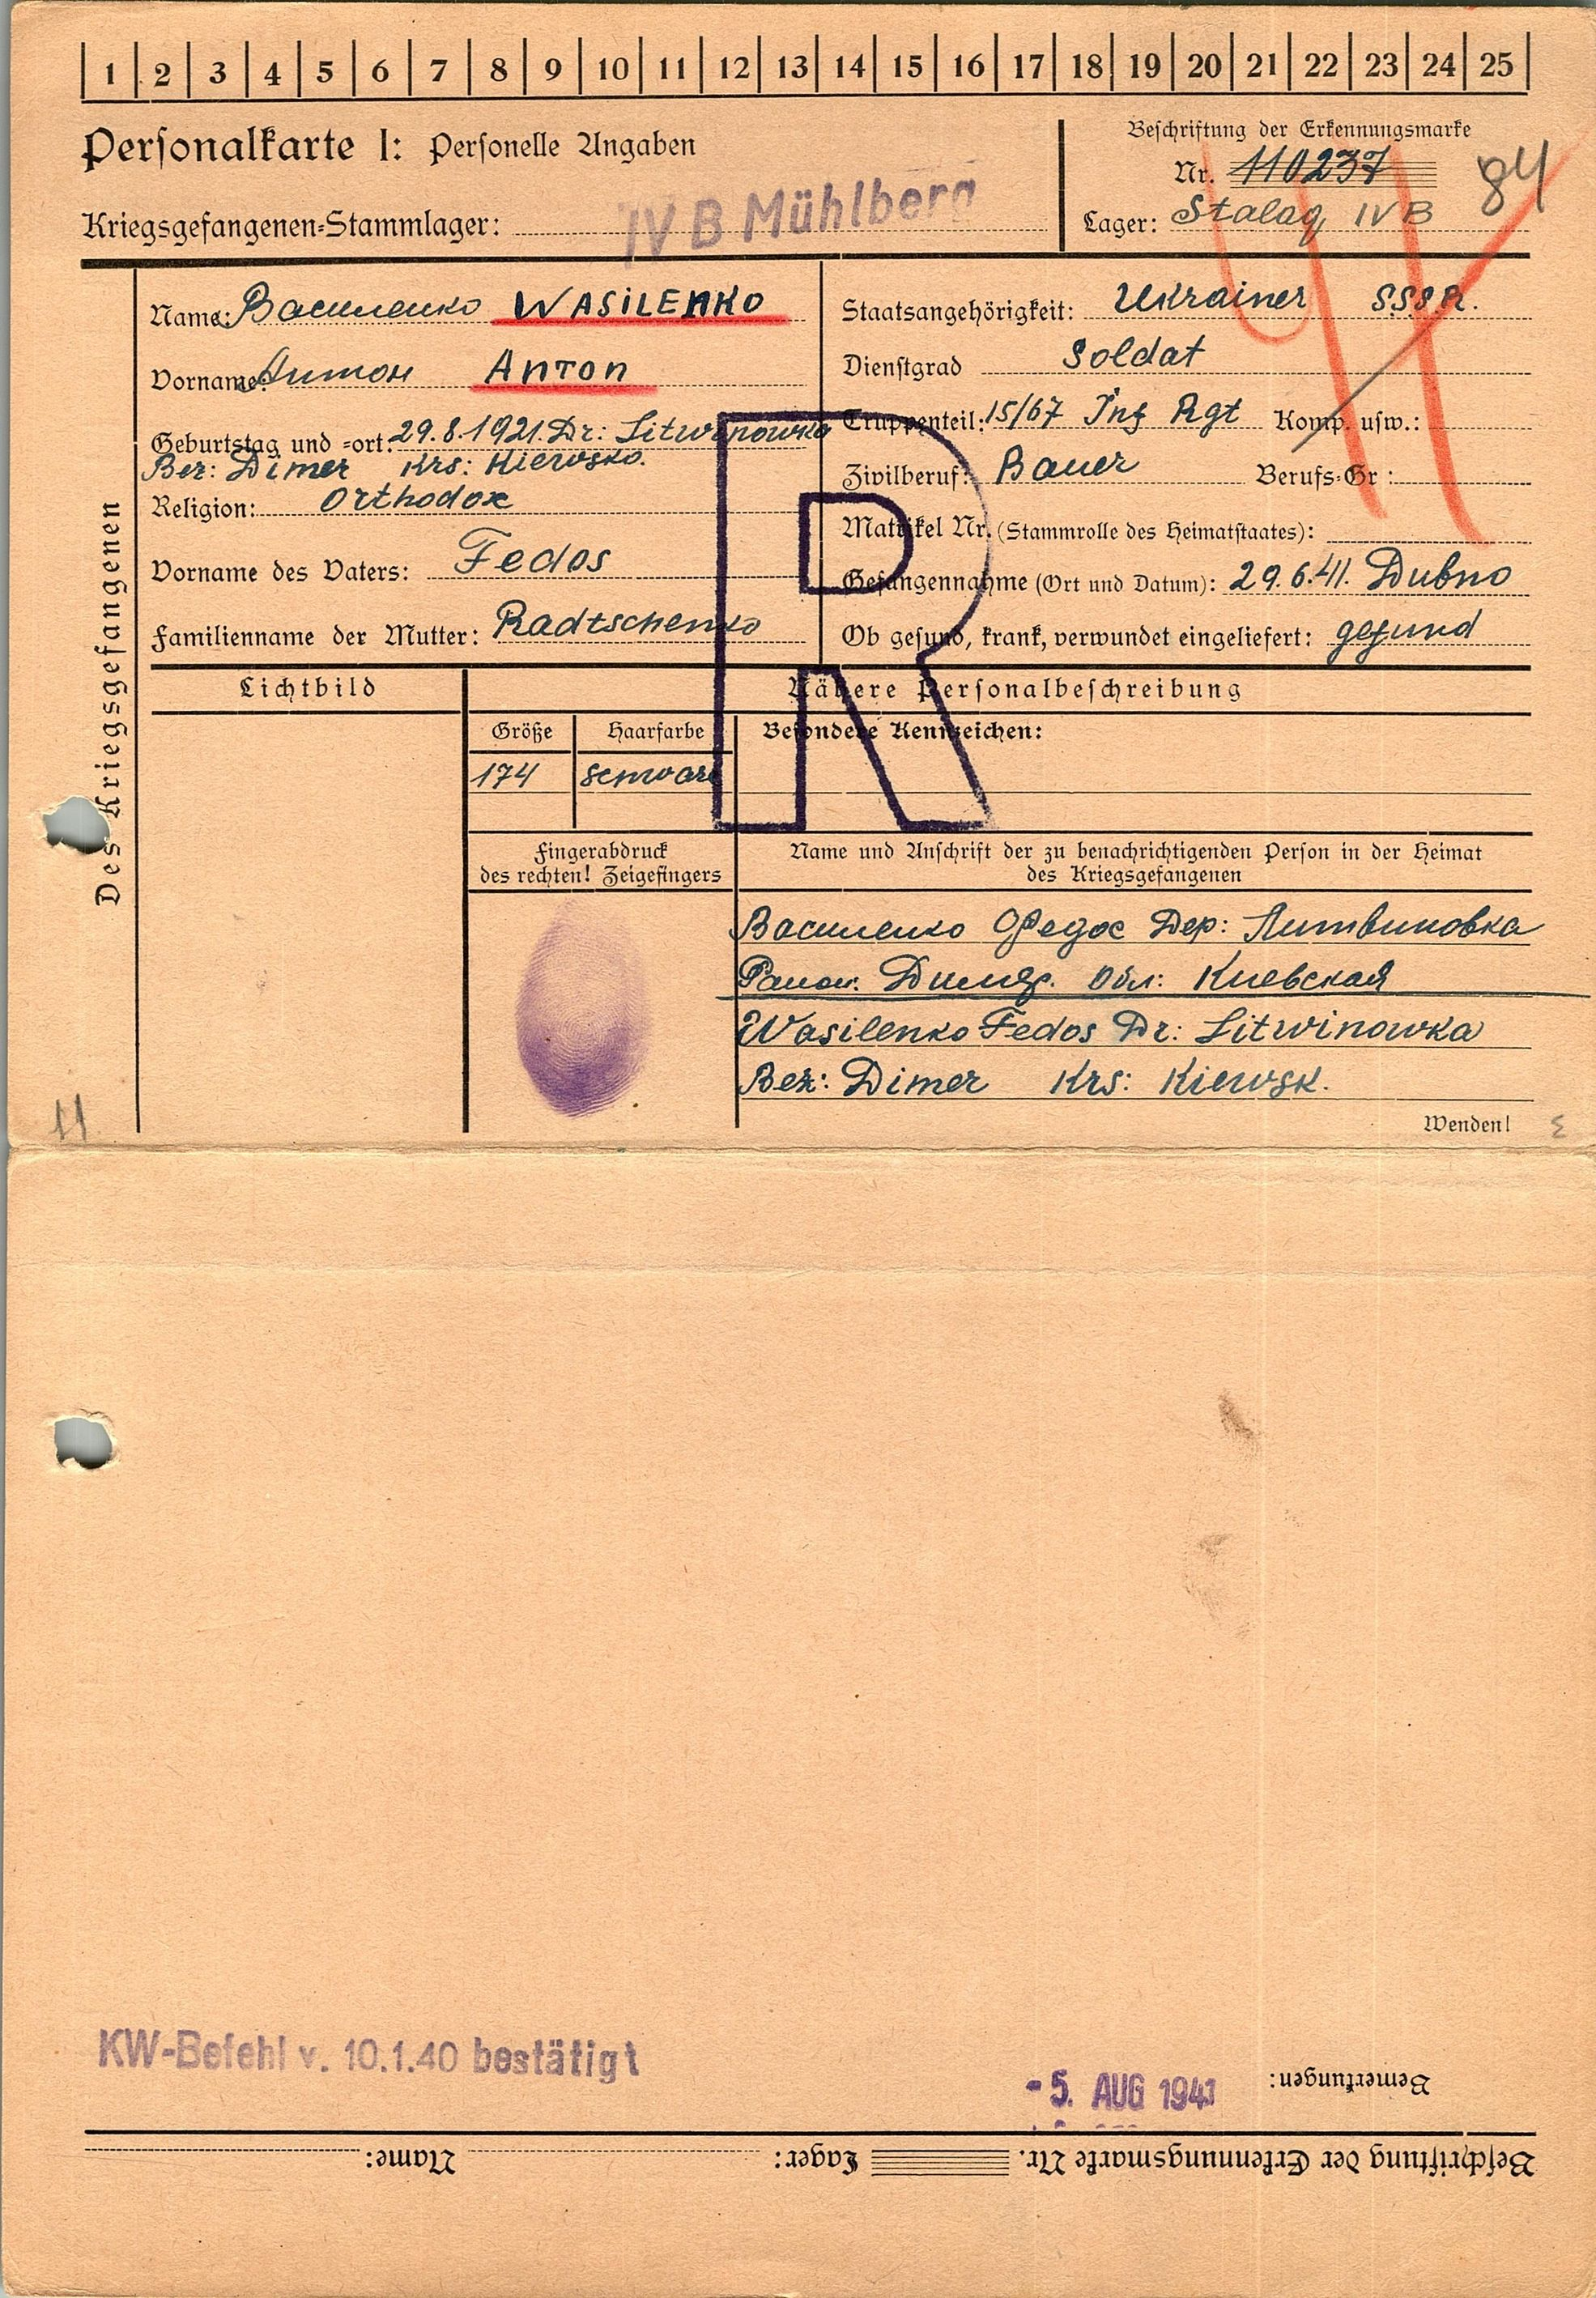 1 2 3 4 5 6 7 8 9 10 11 12 13 14 15 16 17 18 19 20 21 22 23 24 25
Personalkarte I: Personelle Angaben
Beschriftung der Erkennungsmarke
Nr. 110237
84
Kriegsgefangenen-Stammlager: IV B Mühlberg
Lager: Stalag IV B
Des Kriegsgefangenen
Name: Василенко WASiLENKO
Vorname: Антон Anton
Geburtstag und =ort: 29.8.1921. Dr: Litwinowka
Bez: Dimer Krs: Kiewsko.
Religion: Orthodox
Vorname des Vaters: Fedos
Familienname der Mutter: Radtschenko
Staatsangehörigkeit: Ukrainer S.S.S.R.
Dienstgrad Soldat
Truppenteil: 15/67 Inf Rgt Komp. usw.:
Zivilberuf: Bauer Berufs=Gr:
Matrikel Nr. (Stammrolle des Heimatstaates):
Gefangennahme (Ort und Datum): 29.6.41. Dubno
Ob gesund, krank, verwundet eingeliefert: gesund
R
Lichtbild
Nähere Personalbeschreibung
Größe Haarfarbe Besondere Kennzeichen:
174 schwarz
Fingerabdruck
des rechten! Zeigefingers
Name und Anschrift der zu benachrichtigenden Person in der Heimat
des Kriegsgefangenen
Василенко Федос Дер: Литвиновка
Обл: Киевская
Wasilenko Fedos Dr: Litwinowka
Bez: Dimer Krs: Kiewsk.
Wenden!
11
KW-Befehl v. 10.1.40 bestätigt
Bemerkungen:
- 5. AUG 1941
Beschriftung der Erkennungsmarke Nr. Lager: Name: